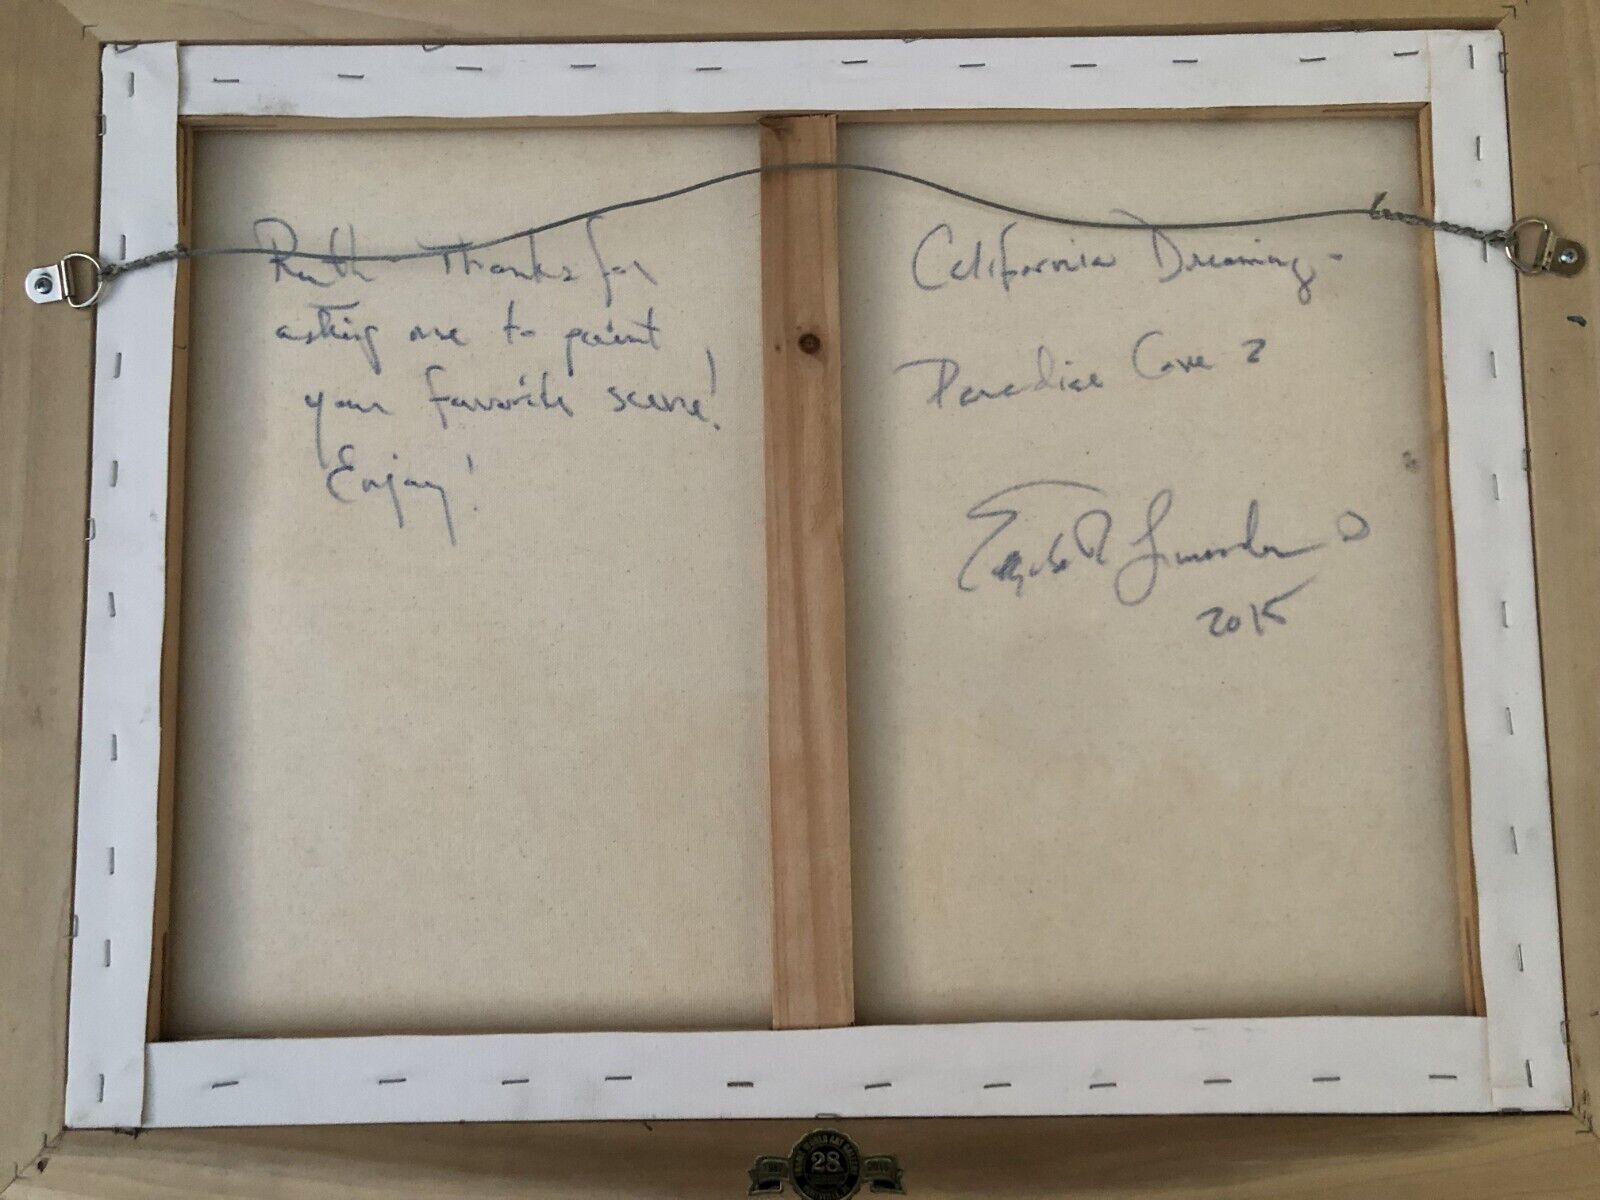 Ruth - Thanks for
asking me to paint
your favorite scene!
Enjoy!
California Dreaming -
Paradise Cove 2
2015
WORLD ART GALLERY
28